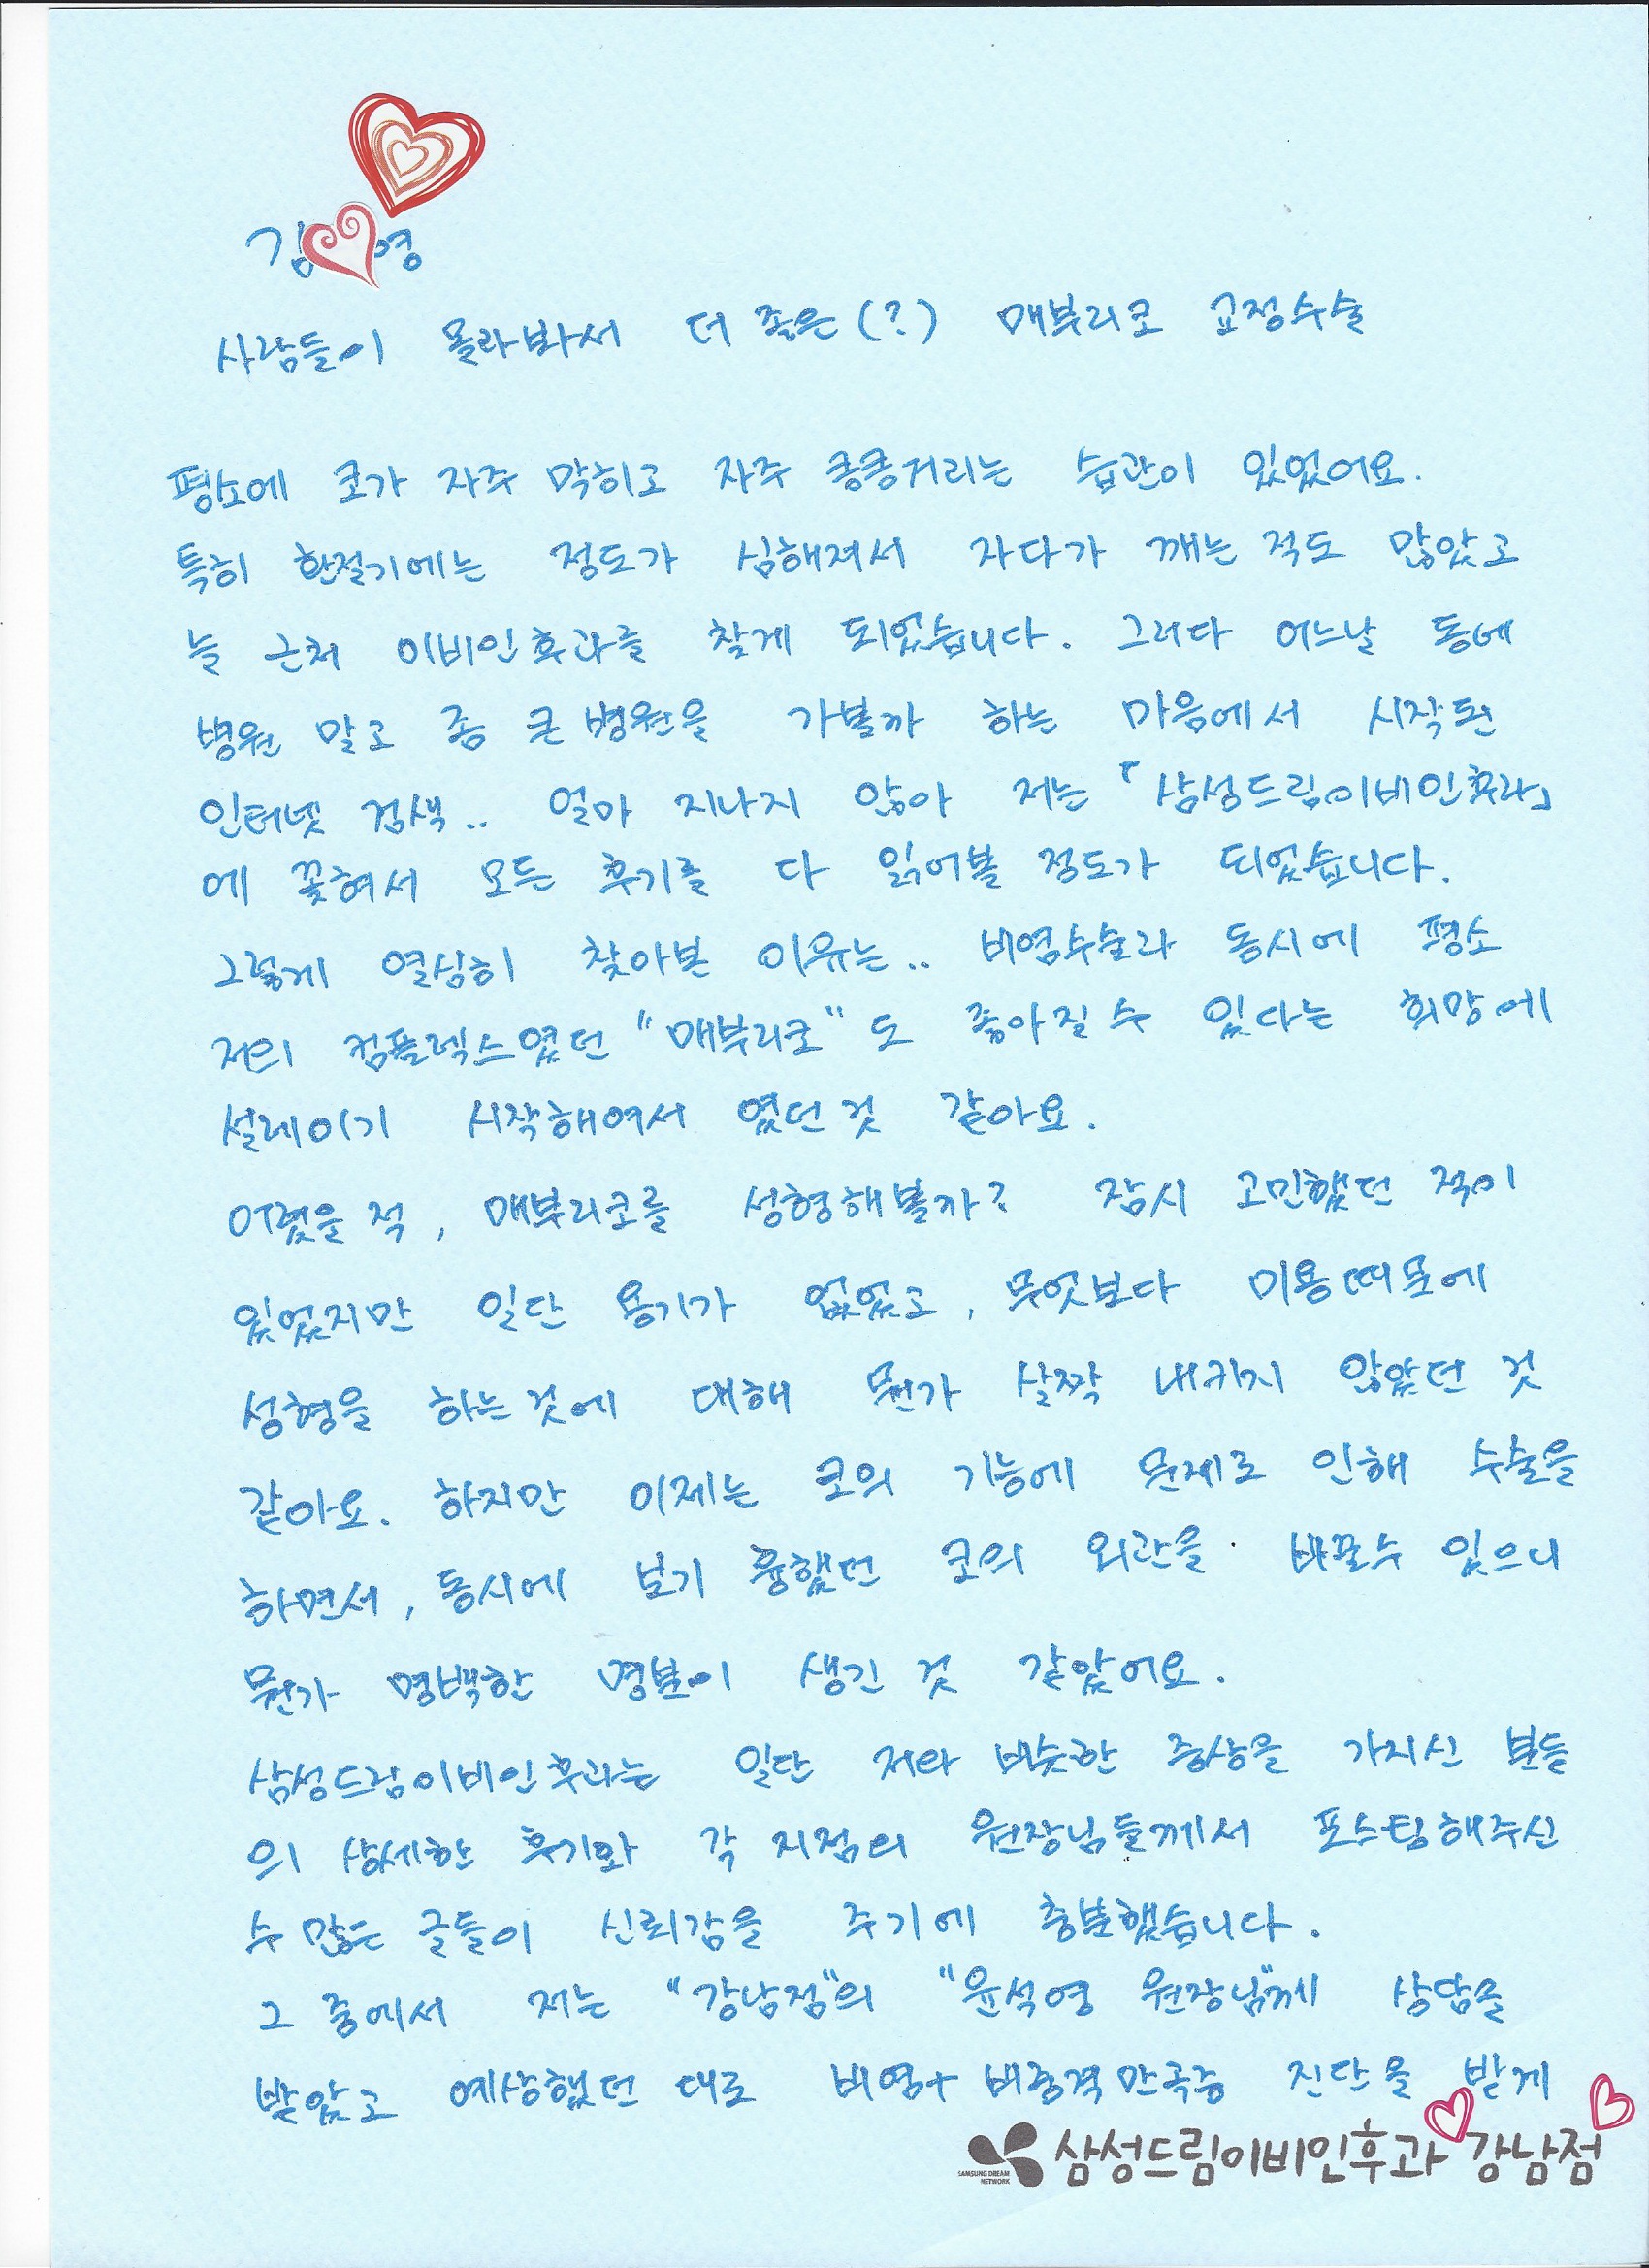 김 영
사람들이 몰라봐서 더 좋은(?) 매부리코 교정수술
평소에 코가 자주 막히고 자주 킁킁거리는 습관이 있었어요.
특히 환절기에는 정도가 심해져서 자다가 깨는 적도 많았고
늘 근처 이비인후과를 찾게 되었습니다. 그러다 어느날 동네
병원 말고 좀 큰 병원을 가볼까 하는 마음에서 시작된
인터넷 검색.. 얼마 지나지 않아 저는 「삼성드림이비인후과」
에 꽂혀서 모든 후기를 다 읽어볼 정도가 되었습니다.
그렇게 열심히 찾아본 이유는.. 비염수술과 동시에 평소
저의 컴플렉스였던 "매부리코"도 좋아질 수 있다는 희망에
설레이기 시작해여서 였던 것 같아요.
어렸을 적, 매부리코를 성형해볼까? 잠시 고민했던 적이
있었지만 일단 용기가 없었고, 무엇보다 미용때문에
성형을 하는 것에 대해 뭔가 살짝 내키지 않았던 것
같아요. 하지만 이제는 코의 기능에 문제로 인해 수술을
하면서, 동시에 보기 흉했던 코의 외관을 바꿀수 있으니
뭔가 명백한 명분이 생긴 것 같았어요.
삼성드림이비인후과는 일단 저와 비슷한 증상을 가지신 분들
의 상세한 후기와 각 지점의 원장님들께서 포스팅해주신
수 많은 글들이 신뢰감을 주기에 충분했습니다.
그 중에서 저는 "강남점"의 "윤석영 원장님"께 상담을
받았고 예상했던 대로 비염+비중격만곡증 진단을 받게
SAMSUNG DREAM NETWORK 삼성드림이비인후과 강남점